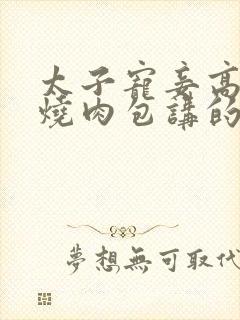 太子寵妾高
燒肉包講的
夢想無可取代